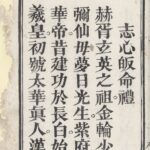 志心皈命禮
赫胥玄英之祖金輪少
彌仙毋夢日光生紫府
華帝昔建功於長白始
羲皇初號太華真人漢